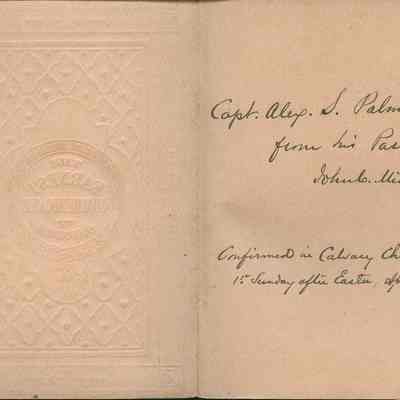 Capt. Alex. S. Palm
from his Pas
John C. Mi
Confirmed in Calvary Ch
1st Sunday after Easter, Ap